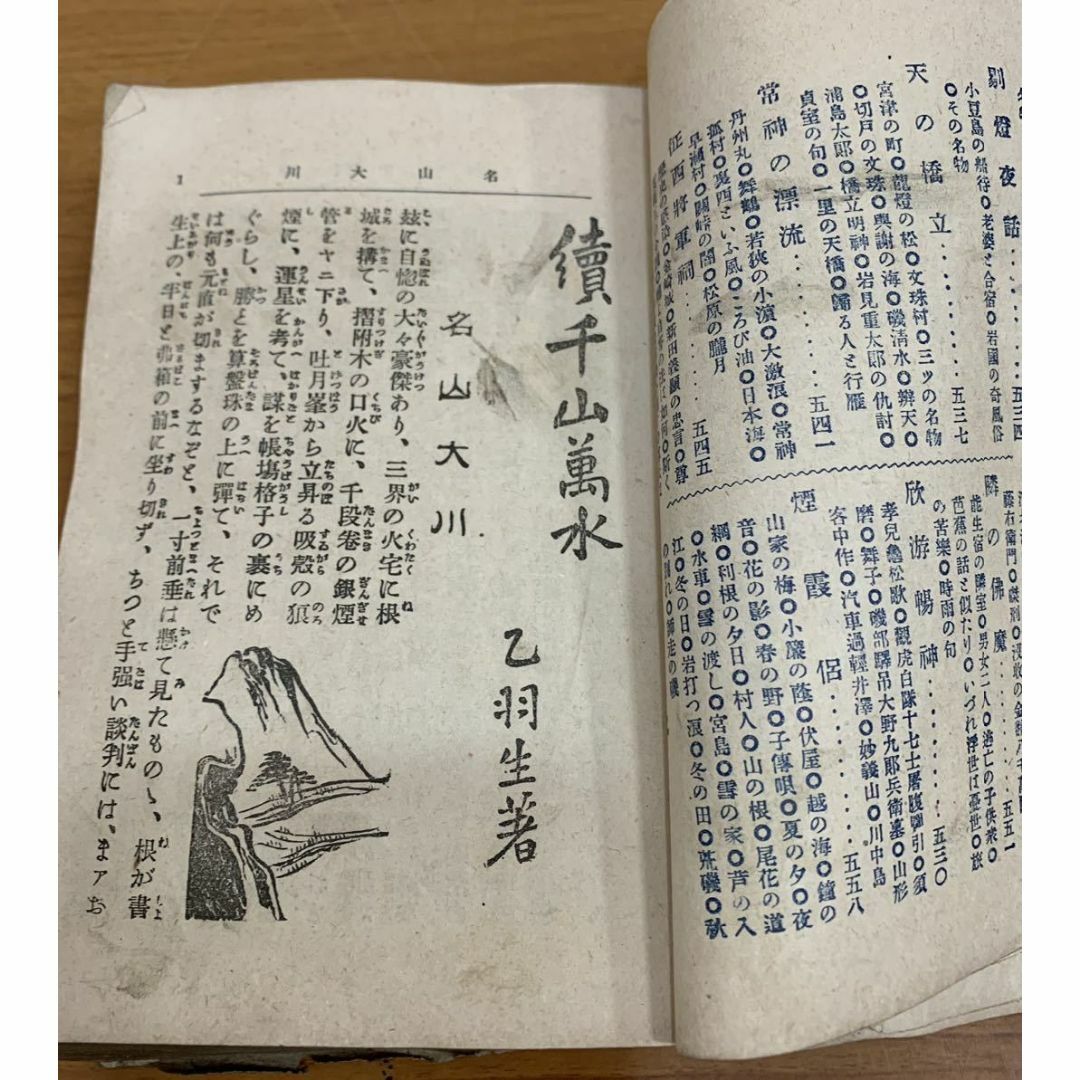 剔燈夜話..........五三四
小豆島の船待〇老婆と合宿〇岩國の奇風俗
〇その名物
天の橋立..........五三七
宮津の町〇龍燈の松〇文珠村〇三ッの名物
〇切戸の文珠〇與謝の海〇磯清水〇辨天〇
浦島太郎〇橋立明神〇岩見重太郎の仇討〇
貞室の句〇一里の天橋〇歸る人と行雁
常神の漂流..........五四一
丹州丸〇舞鶴〇若狹の小濵〇大激浪〇常神
孤村〇裏四といふ風〇ころび油〇日本海〇
早瀬村〇關峠の闇〇松原の朧月
征西將軍祠..........五四五
隣の佛魔..........五五一
能生宿の隣室〇男女二人〇逃亡の子供衆〇
芭蕉の話と似たり〇いづれ浮世は憂世〇旅
の苦樂〇時雨の句
欣游暢神..........五三〇
孝兒龜松歌〇觀虎白隊十七士屠腹圖引〇須
磨〇舞子〇磯部驛吊大野九郎兵衛墓〇山形
客中作〇汽車過輕井澤〇妙義山〇川中島
煙霞侶..........五五八
山家の梅〇小簾の蔭〇伏屋〇越の海〇鐘の
音〇花の影〇春の野〇子傳唄〇夏の夕〇夜
網〇利根の夕日〇村人〇山の根〇尾花の道
〇水車〇雪の渡し〇宮島〇雪の家〇芦の入
江〇冬の日〇岩打つ浪〇冬の田〇荒磯〇秋
名山大川
1
續千山萬水
乙羽生著
名山大川
玆に自惚の大々豪傑あり、三界の火宅に根
城を構て、摺附木の口火に、千段卷の銀煙
管をヤニ下り、吐月峯から立昇る吸殻の狼
煙に、運星を考て、謀を帳塲格子の裏にめ
ぐらし、勝とを算盤珠の上に彈て、それで
は何も元直が切まするなぞと、一寸前垂は懸て見たものゝ、根が書
生上の、半日と帯箱の前に坐り切ず、ちつと手强い談判には、まァお